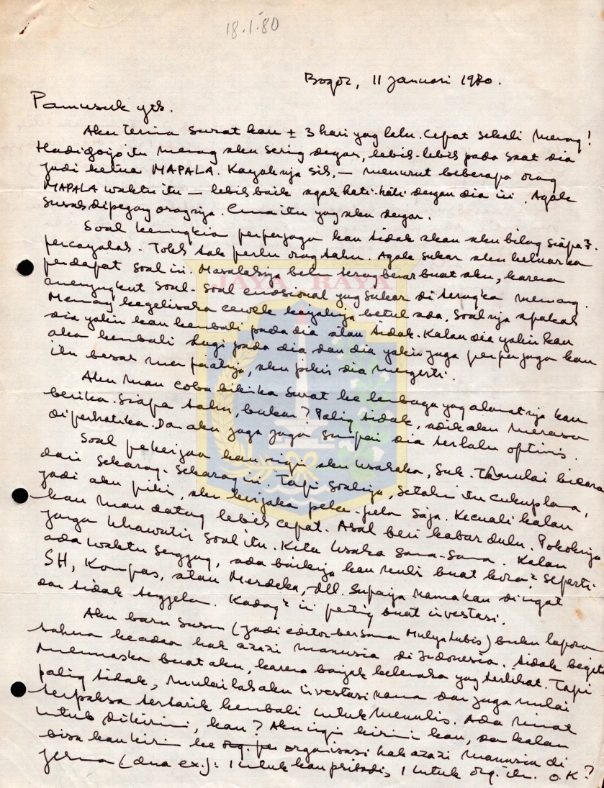 18.1.80
Bogor, 11 Januari 1980.
Pamusuk yth.
Aku terima surat kau ± 3 hari yag lalu. Cepat sekali memang!
Hadidjojo itu memang aku sering degar, lebih-lebih pada saat dia
jadi ketua MAPALA. Kayaknja sih, — menurut beberapa orang
MAPALA waktu itu — lebih baik agak hati-hati degan dia ini. Agak
susah dipegag oragnja. Cuma itu yag aku degar.
Soal kemugkian perpajagan kau tidak akan aku bilag siapa².
percayalah. Toh tak perlu orag tahu. Agak sukar aku keluarka
pendapat soal ini. Masalahnja belu terag benar buat aku, karena
menyagkut soal-soal emosional yag sukar diteragka memang.
Memang kegelisaha cewek kayaknja betul ada, soalnja apakah
dia yakin kau kembali pada dia atau tidak. Kalau dia yakin kau
akan kembali lagi pada dia dan dia yakin juga perpajagan kau
itu besar manfaatnja, aku pikir dia mengerti.
Aku mau coba bikika surat ke lembaga yag alamatnja kau
berika. Siapa tahu, bukan? Palig tidak, adik aku merasa
diperhatika. Da aku jaga jaga sampai dia terlalu optimis.
Soal pekerjaan kau aku usahaka, Suk. mulai bicara
dari sekarag. Sekarag ini. Tapi soalnja, setahu itu cukup lama,
jadi aku pikir, aku kerjaka pela-pela saja. Kecuali kalau
kau mau datag lebih cepat. Asal beri kabar dulu. Pokoknja
jangan khawatir soal itu. Kita usaha sama-sama. Kalau
ada waktu seggag, ada baiknja kau nulis buat kora² seperti
SH, Kompas, atau Merdeka, dll. Supaja namakau diigat
dan tidak teggelam. Kadag² ini petig buat investasi.
Aku baru susun (jadi editor bersama Mulya Lubis) buku laporan
tahuna keadaa hak azazi manusia di Indonesia. Tidak begitu
memuaska buat aku, karena bayak kelemaha yag terlihat. Tapi
palig tidak, mulailah aku investasi nama dan juga mulai
terpaksa tertarik kembali untuk menulis. Ada minat
untuk dikirimi, kau? Aku igin kirimi kau, dan kalau
bisa kau kirim ke org. per organisasi hak azazi manusia di
Jerman (dua ex.): 1 untuk kau pribadi, 1 untuk org. itu. O.K?
JAYA RAYA